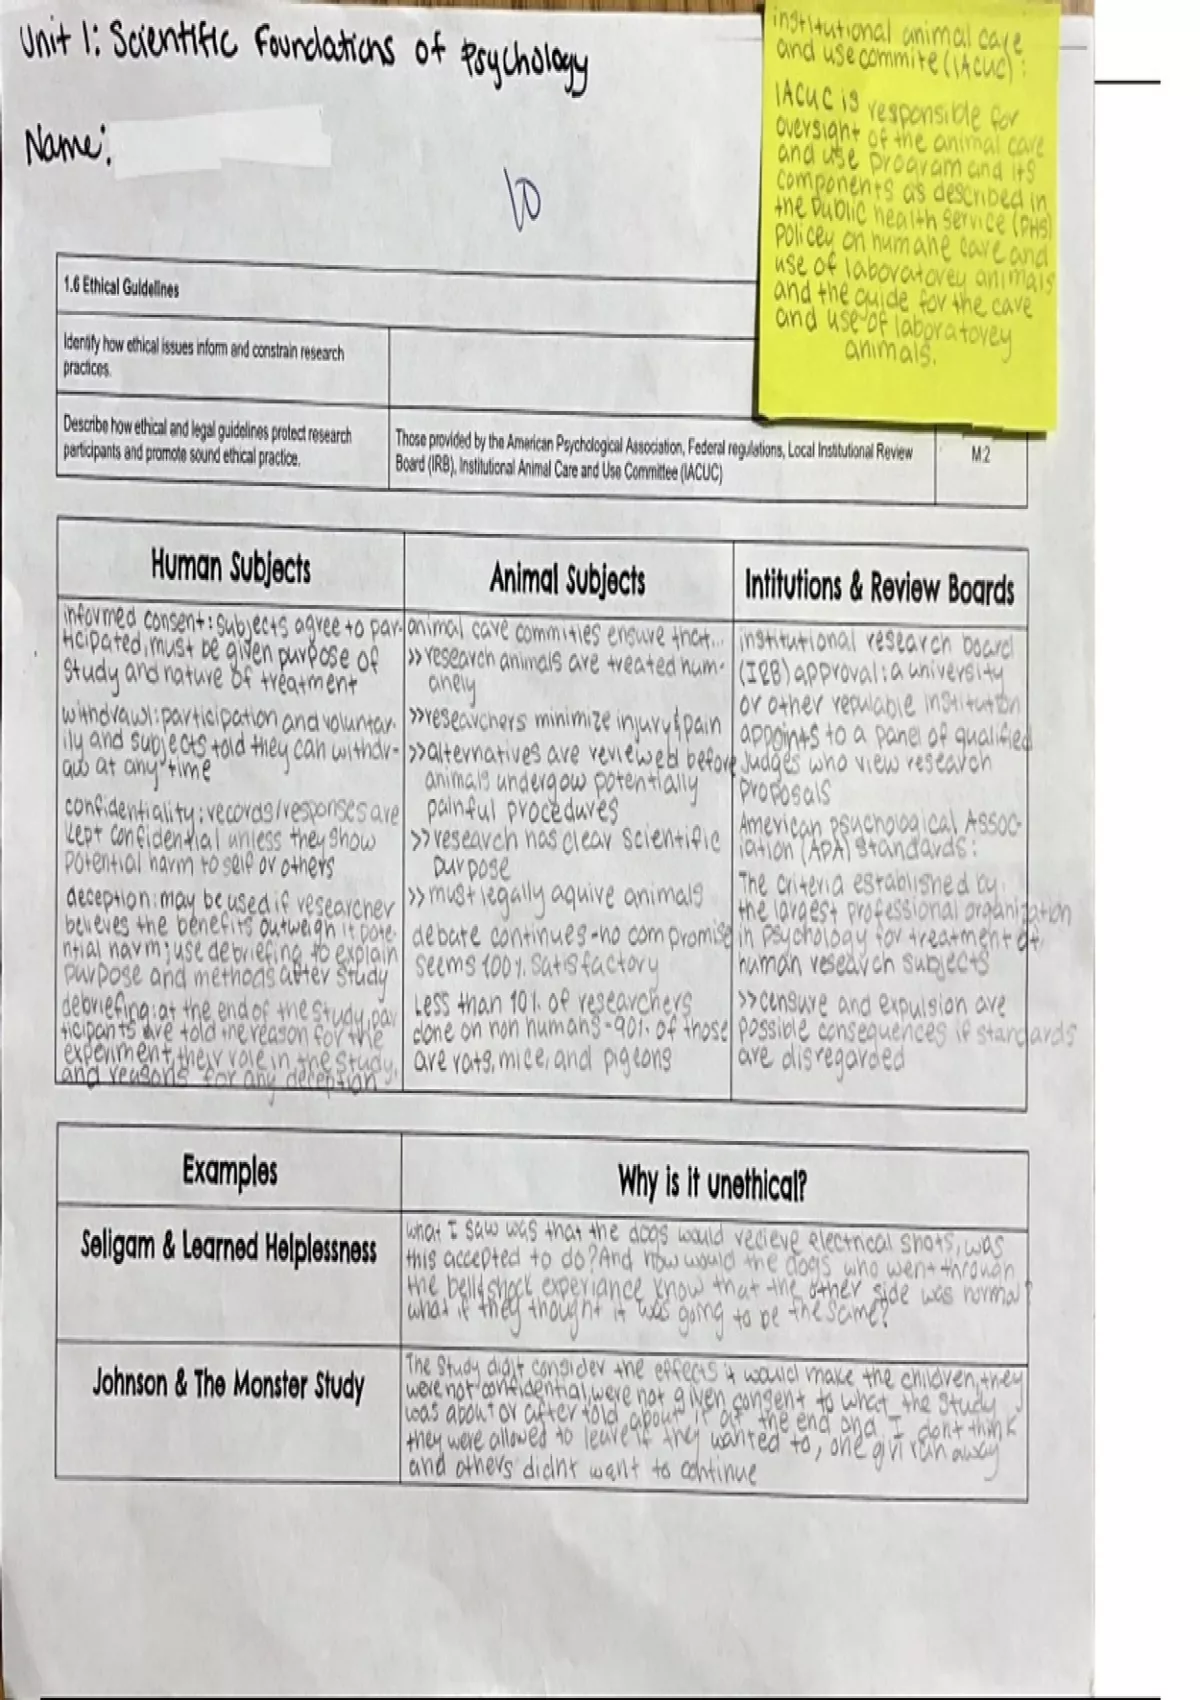 Unit 1: Scientific Foundations of Psychology
Name:
10
institutional animal care
and use commite (IACUC):
IACUC is responsible for
oversight of the animal care
and use program and its
components as described in
the Public health Service (PHS)
Policey on humane care and
use of laboratorey animals
and the guide for the care
and use of laboratorey
animals.
1.6 Ethical Guidelines
Identify how ethical issues inform and constrain research
practices.
Describe how ethical and legal guidelines protect research
participants and promote sound ethical practice.
Those provided by the American Psychological Association, Federal regulations, Local Institutional Review
Board (IRB), Institutional Animal Care and Use Committee (IACUC)
M:2
Human Subjects
informed consent: subjects agree to par-
ticipated, must be given purpose of
study and nature of treatment
withdrawl: participation and voluntar-
ily and subjects told they can withdr-
aw at any time
confidentiality: records/responses are
kept confidential unless they show
potential harm to self or others
deception: may be used if researcher
believes the benefits outweigh it pote-
ntial harm; use debriefing to explain
purpose and methods after study
debriefing: at the end of the study, par
ticipants are told the reason for the
experiment, their role in the study,
and reasons for any deception
Animal Subjects
animal care commities ensure that...
>> research animals are treated hum-
anely
>> researchers minimize injury & pain
>> alternatives are reviewed before
animals undergow potentially
painful procedures
>> research has clear scientific
purpose
>> must legally aquire animals
debate continues - no compromise
seems 100% satisfactory
Less than 10% of researchers
done on non humans - 90% of those
are rats, mice, and pigeons
Intitutions & Review Boards
institutional research board
(IRB) approval: a university
or other repulable institution
appoints to a panel of qualified
judges who view research
proposals
American psychological Assoc-
iation (APA) Standards:
The criteria established by
the largest professional organization
in psychology for treatment of
human research subjects
>> censure and expulsion are
possible consequences if standards
are disregarded
Examples
Why is it unethical?
Seligam & Learned Helplessness
what I saw was that the dogs would recieve electrical shots, was
this accepted to do? And how would the dogs who went through
the bell & shock experiance know that the other side was normal?
what if they thought it was going to be the same?
Johnson & The Monster Study
The study didnt consider the effects it would make the children, they
were not confidential, were not given consent to what the study
was about or after told about it at the end and I dont think
they were allowed to leave if they wanted to, one girl ran away
and others didnt want to continue